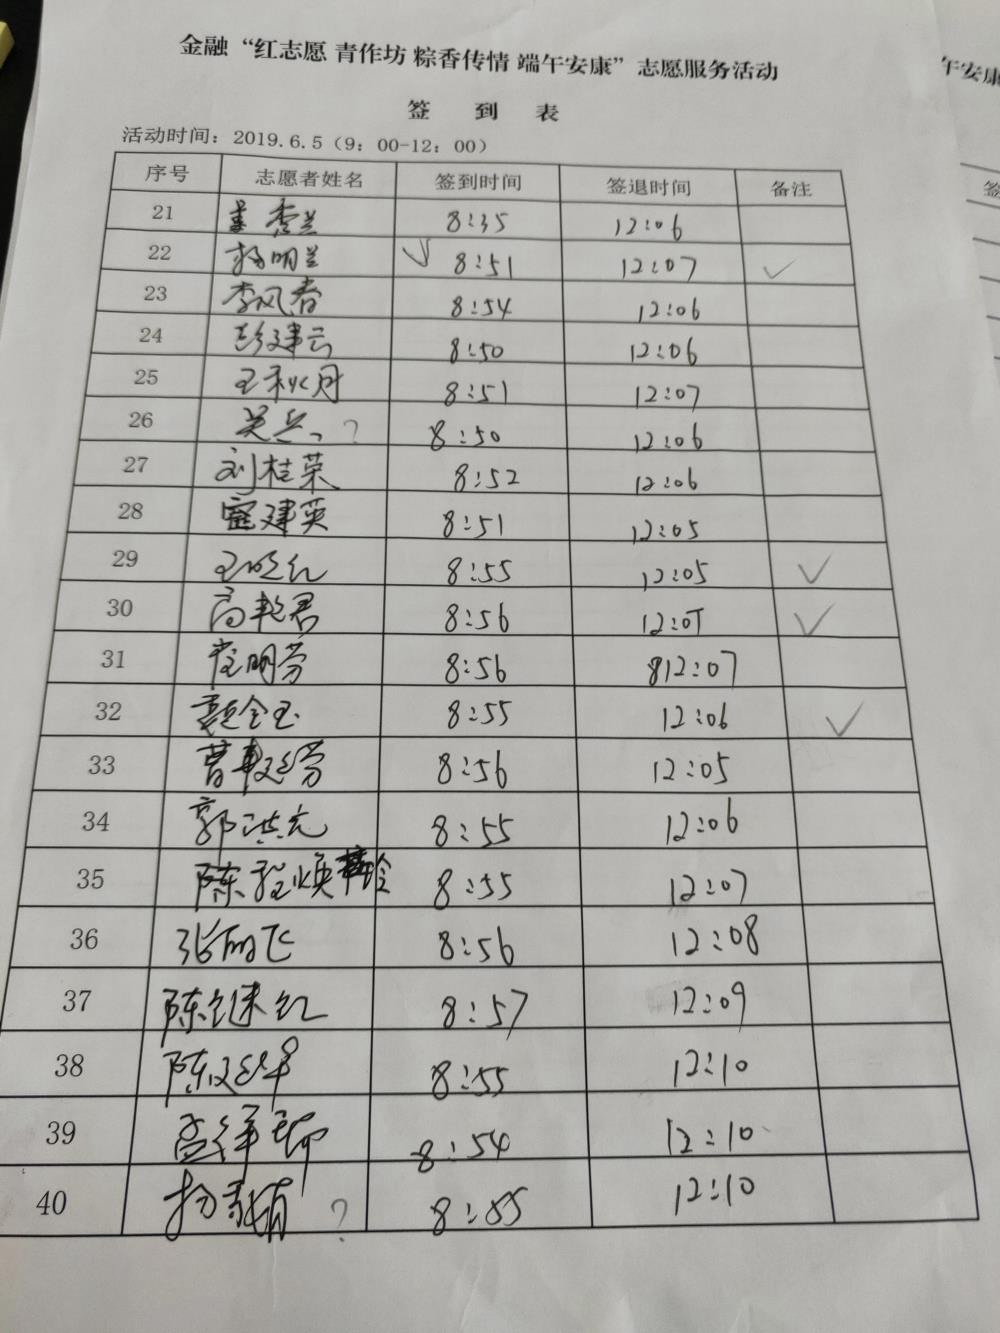 金融“红志愿 青作坊 粽香传情 端午安康”志愿服务活动
午安康
签 到 表
活动时间：2019.6.5（9：00-12：00）
序号 志愿者姓名 签到时间 签退时间 备注
签
21 秀兰 8:35 12:06
22 杨明兰 ✓ 8:51 12:07 ✓
23 李风春 8:54 12:06
24 彭建云 8:50 12:06
25 王秋月 8:51 12:07
26 吴兵 ? 8:50 12:06
27 刘桂荣 8:52 12:06
28 建英 8:51 12:05
29 王晓红 8:55 12:05 ✓
30 高艳君 8:56 12:05 ✓
31 明芳 8:56 812:07
32 金玉 8:55 12:06 ✓
33 曹 芳 8:56 12:05
34 郭洪元 8:55 12:06
35 陈 焕 8:55 12:07
36 张丽飞 8:56 12:08
37 陈继红 8:57 12:09
38 陈延华 8:55 12:10
39 孟 8:54 12:10
40 杨 ? 8:55 12:10